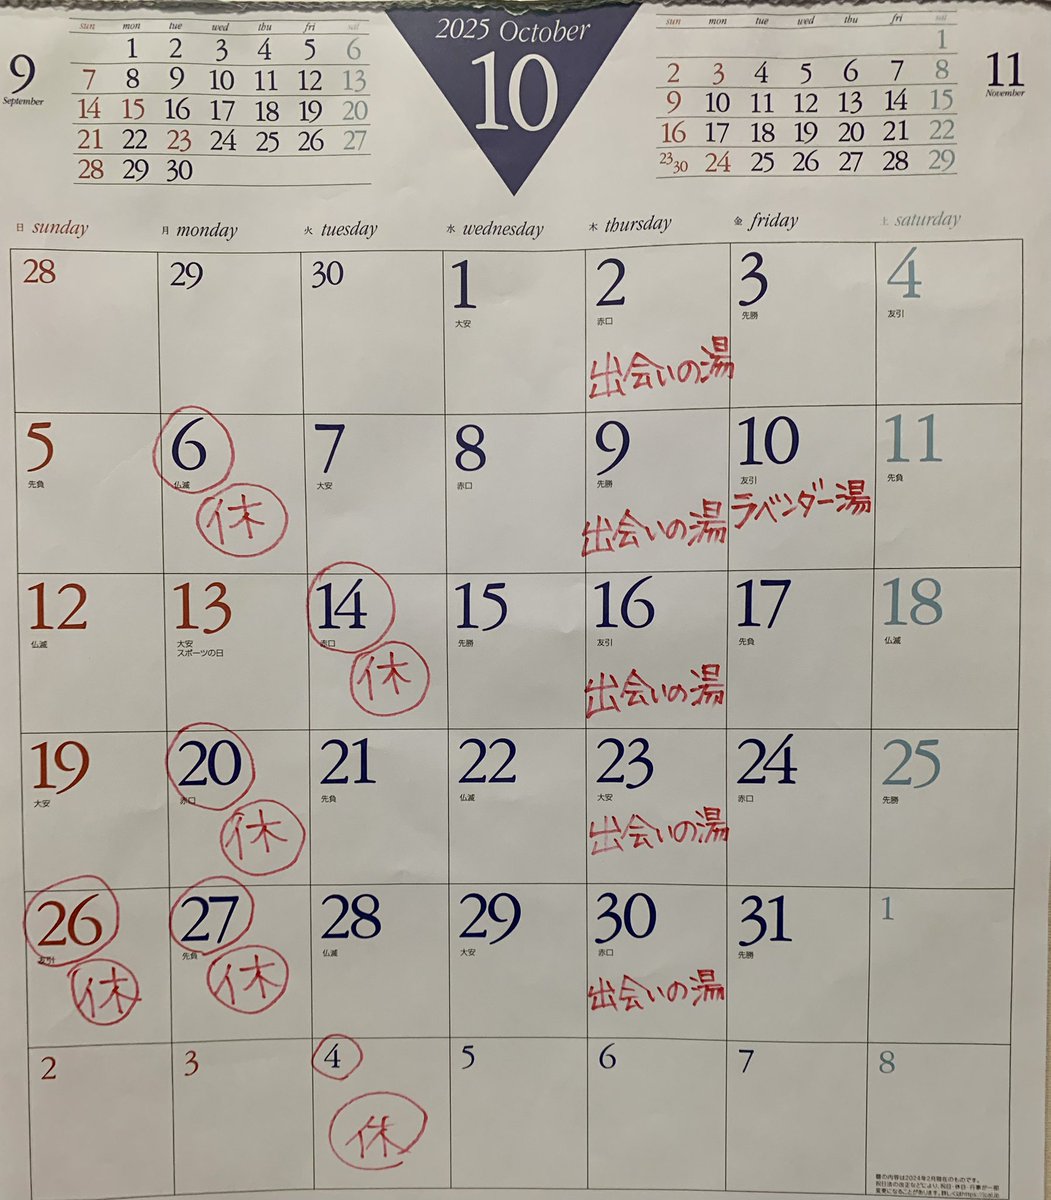 2025 October
10
9
September
sun mon tue wed thu fri sat
1 2 3 4 5 6
7 8 9 10 11 12 13
14 15 16 17 18 19 20
21 22 23 24 25 26 27
28 29 30
11
November
sun mon tue wed thu fri sat
1
2 3 4 5 6 7 8
9 10 11 12 13 14 15
16 17 18 19 20 21 22
23 30 24 25 26 27 28 29
日 sunday 月 monday 火 tuesday 水 wednesday 木 thursday 金 friday 土 saturday
28 29 30 1 2 3 4
大安 赤口 先勝 友引
出会いの湯
5 6 7 8 9 10 11
先負 仏滅 大安 赤口 先勝 友引 先負
休 出会いの湯 ラベンダー湯
12 13 14 15 16 17 18
仏滅 大安 赤口 先勝 友引 先負 仏滅
スポーツの日
休 出会いの湯
19 20 21 22 23 24 25
大安 赤口 先負 仏滅 大安 赤口 先勝
休 出会いの湯
26 27 28 29 30 31 1
友引 先負 仏滅 大安 赤口 先勝
休 休 出会いの湯
2 3 4 5 6 7 8
休
暦の内容は2024年2月現在のものです。